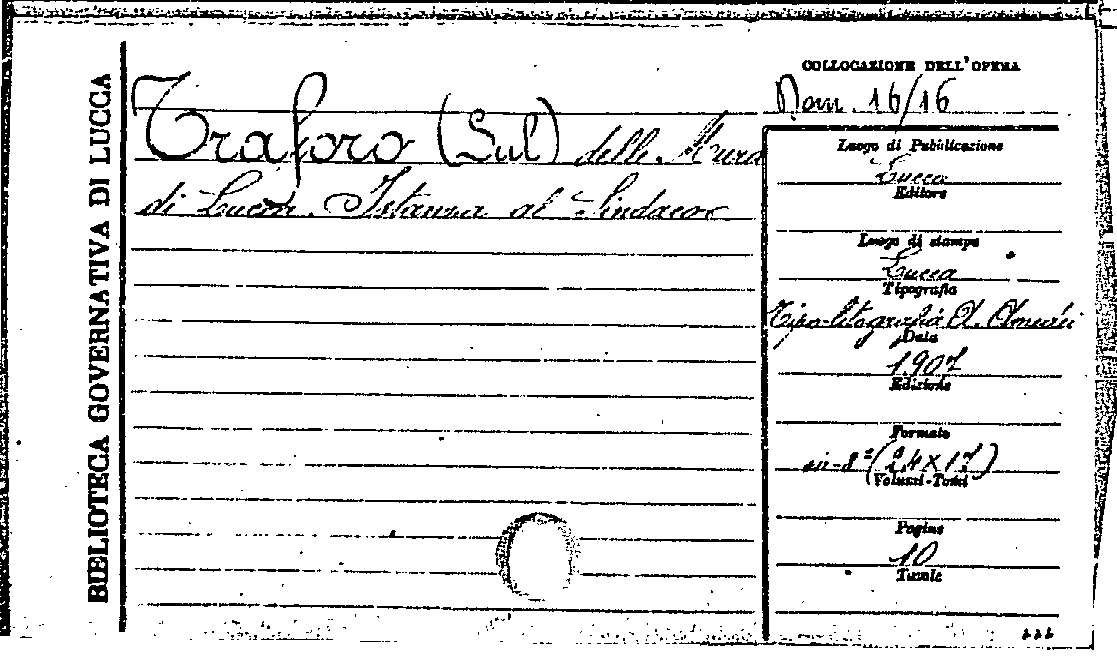 BIBLIOTECA GOVERNATIVA DI LUCCA
Traforo (Sul) delle Mura
di Lucca. Istanza al Sindaco
COLLOCAZIONE DELL'OPERA
16/16
Luogo di Pubblicazione
Lucca
Editore
Luogo di stampa
Lucca
Tipografia
Tipo-litografia A.
Data
1907
Edizione
Formato
in-8º (24 X 17)
Volumi-Tomi
Pagine
10
Tavole